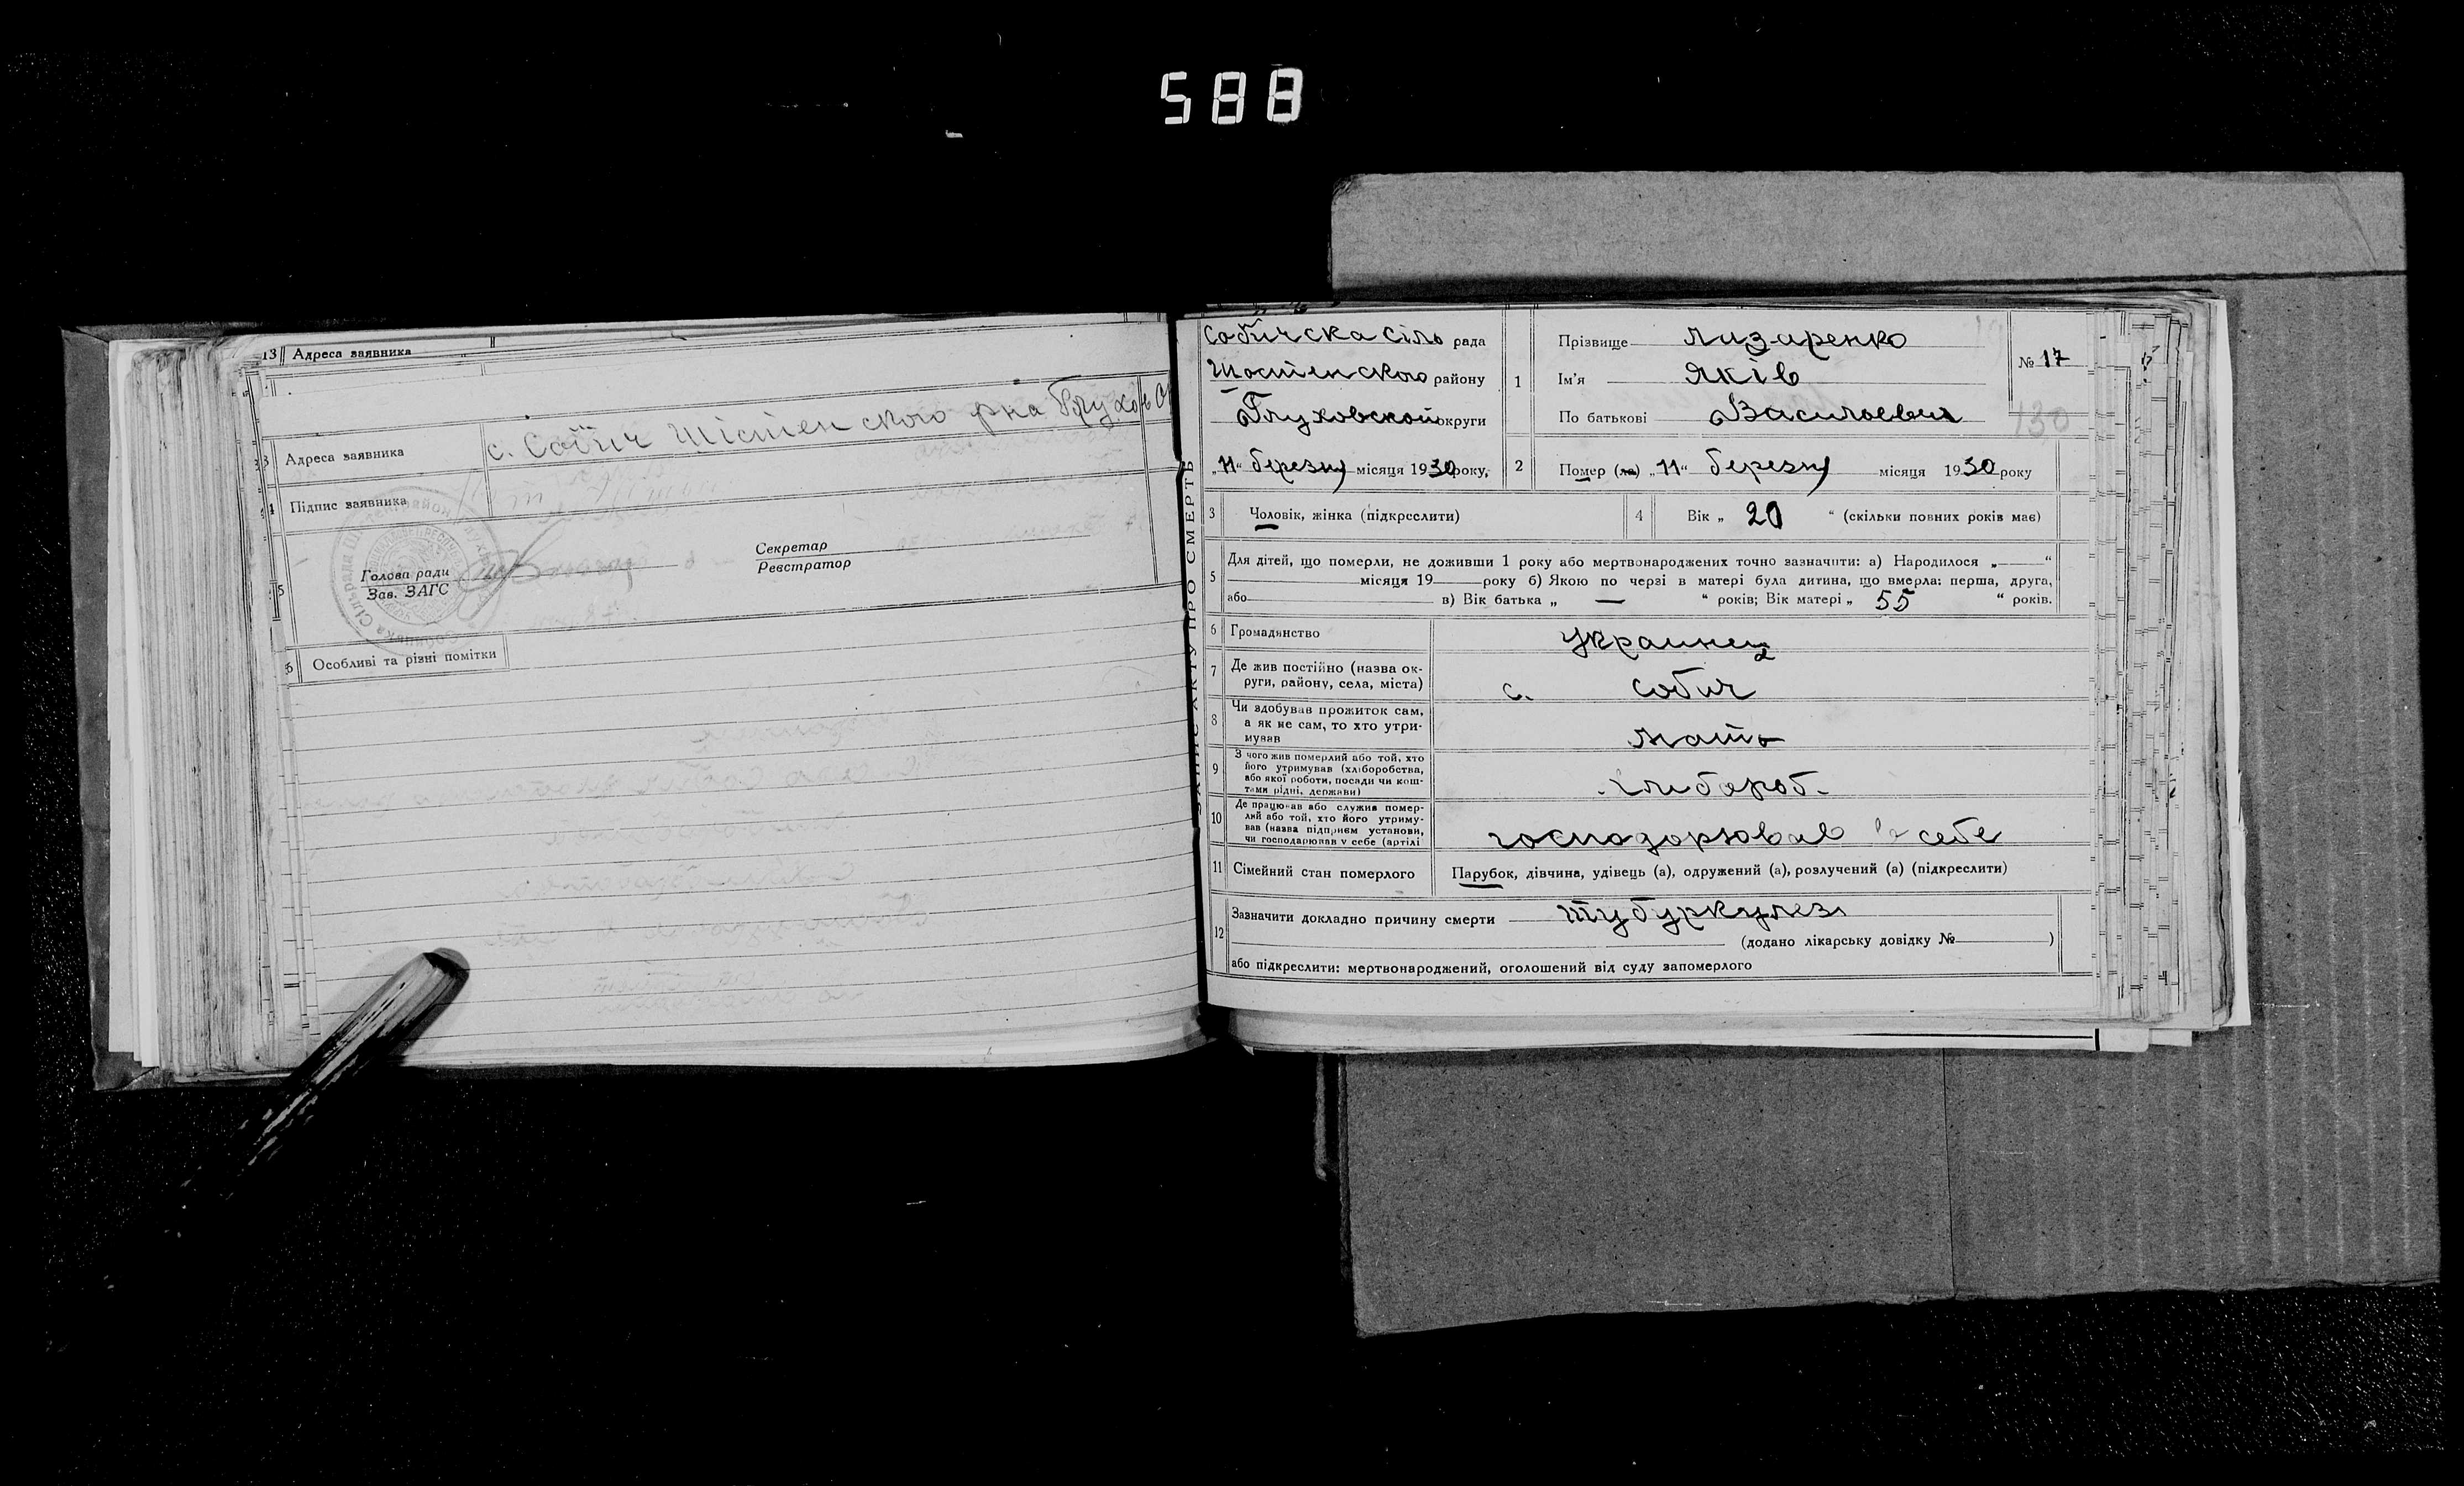 588
13 Адреса заявника
Адреса заявника с. Собич Шістенского рна Глухов
Підпис заявника
Голова ради
Зав. ЗАГС
Секретар
Реєстратор
Особливі та різні помітки
ЗАПИС АКТУ ПРО СМЕРТЬ
Собичска Сіль рада
Шостенского району
Глуховской округи
„11“ березня місяця 1930 року,
1 Прізвище Лазаренко
Ім'я Яків
По батькові Васильевич
№ 17
130
2 Помер (ла) „11“ березня місяця 1930 року
3 Чоловік, жінка (підкреслити)
4 Вік „ 20 “ (скільки повних років має)
5 Для дітей, що померли, не доживши 1 року або мертвонароджених точно зазначити: а) Народилося „ “
місяця 19 року б) Якою по черзі в матері була дитина, що вмерла: перша, друга,
або в) Вік батька „ — “ років; Вік матері „ 55 “ років.
6 Громадянство украинец
7 Де жив постійно (назва ок-
руги, району, села, міста) с. Собич
8 Чи здобував прожиток сам,
а як не сам, то хто утри-
мував мать
9 З чого жив померлий або той, хто
його утримував (хліборобства,
або якої роботи, посади чи кош-
тами рідні, держави) хлибороб
10 Де працював або служив помер-
лий або той, хто його утриму-
вав (назва підприєм установи,
чи господарював у себе (артілі господорював в себе
11 Сімейний стан померлого Парубок, дівчина, удівець (а), одружений (а), розлучений (а) (підкреслити)
12 Зазначити докладно причину смерти тубуркулез
(додано лікарську довідку № )
або підкреслити: мертвонароджений, оголошений від суду запомерлого